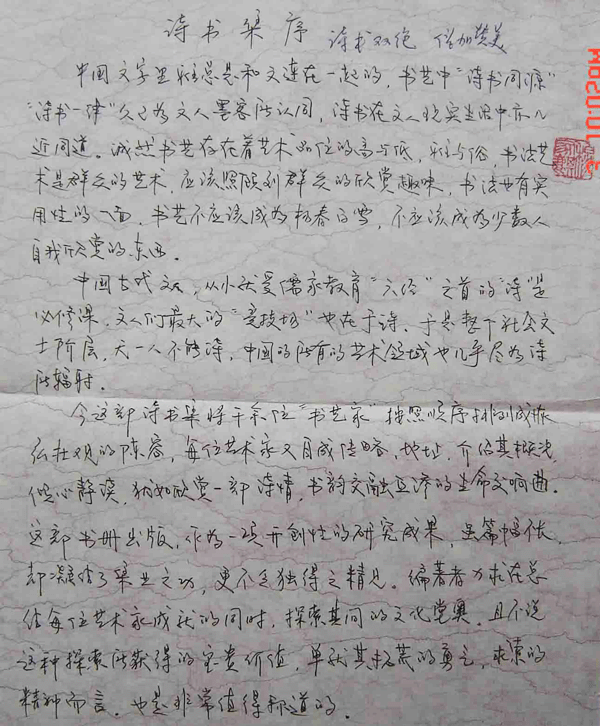 诗书集序 诗书双绝 倍加赞美
中国文字里 总是和文连在一起的，书艺中“诗书同源”
“诗书一律”久已为文人墨客所认同，诗书在文人现实生活中亦几
近同道。诚然书艺存在着艺术品位的高与低，雅与俗，书法艺
术是群众的艺术，应该照顾到群众的欣赏趣味，书法也有实
用性的一面，书艺不应该成为阳春白雪，不应该成为少数人
自我欣赏的东西。
中国古代文人，从小就受儒家教育“六经”之首的“诗”是
必修课，文人们最大的“竞技场”也在于诗。于是整个社会文
士阶层，无一人不能诗，中国的所有的艺术领域也几乎尽为诗
所辐射。
今这部诗书集将千余位“书艺家”按照顺序排列成恢
弘壮观的阵容，每位艺术家又自成传略、地址，介绍其概况，
倾心静读，犹如欣赏一部诗情，书韵交融互济的生命交响曲。
这部书册出版，作为一项开创性的研究成果，虽篇幅 ，
却凝结了集 之功，更不乏独得之精见。编著者力求在总
结每位艺术家成就的同时，探索其间的文化堂奥。且不说
这种探索所获得的宝贵价值，单就其拓荒的勇气，求索的
精神而言。也是非常值得称道的。